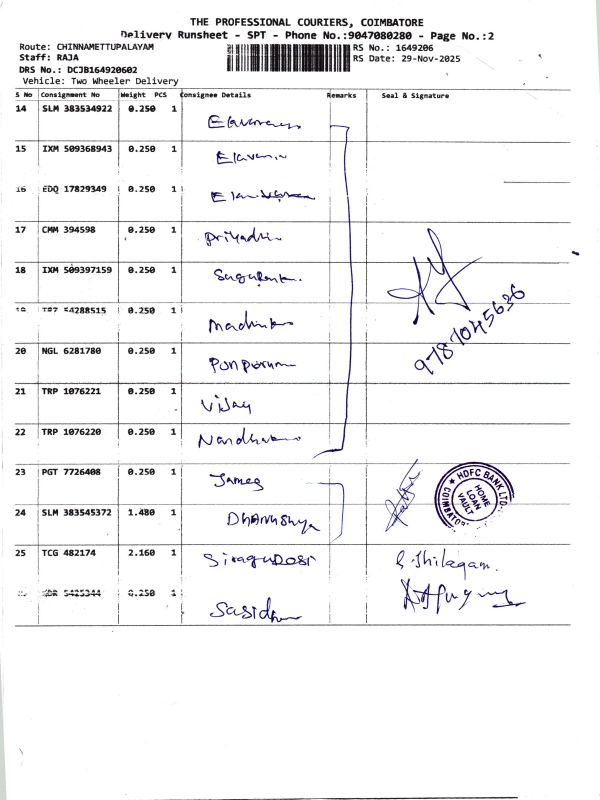 THE PROFESSIONAL COURIERS, COIMBATORE
Delivery Runsheet - SPT - Phone No.:9047080280 - Page No.:2
Route: CHINNAMETTUPALAYAM
RS No.: 1649206
Staff: RAJA
RS Date: 29-Nov-2025
DRS No.: DCJB164920602
Vehicle: Two Wheeler Delivery
S No Consignment No Weight PCS Consignee Details Remarks Seal & Signature
14 SLM 383534922 0.250 1
15 IXM 509368943 0.250 1
16 EDQ 17829349 0.250 1
17 CMM 394598 0.250 1 Priyadh
18 IXM 509397159 0.250 1
54288515 0.250 1
20 NGL 6281780 0.250 1
9787045636
21 TRP 1076221 0.250 1 Vijay
22 TRP 1076220 0.250 1
23 PGT 7726408 0.250 1 James
HDFC BANK LTD.
HOME LOAN VAULT
COIMBATOR
24 SLM 383545372 1.480 1 Dhanushya
25 TCG 482174 2.160 1 SiraguDosi S. Thilagam.
5425344 0.250 1